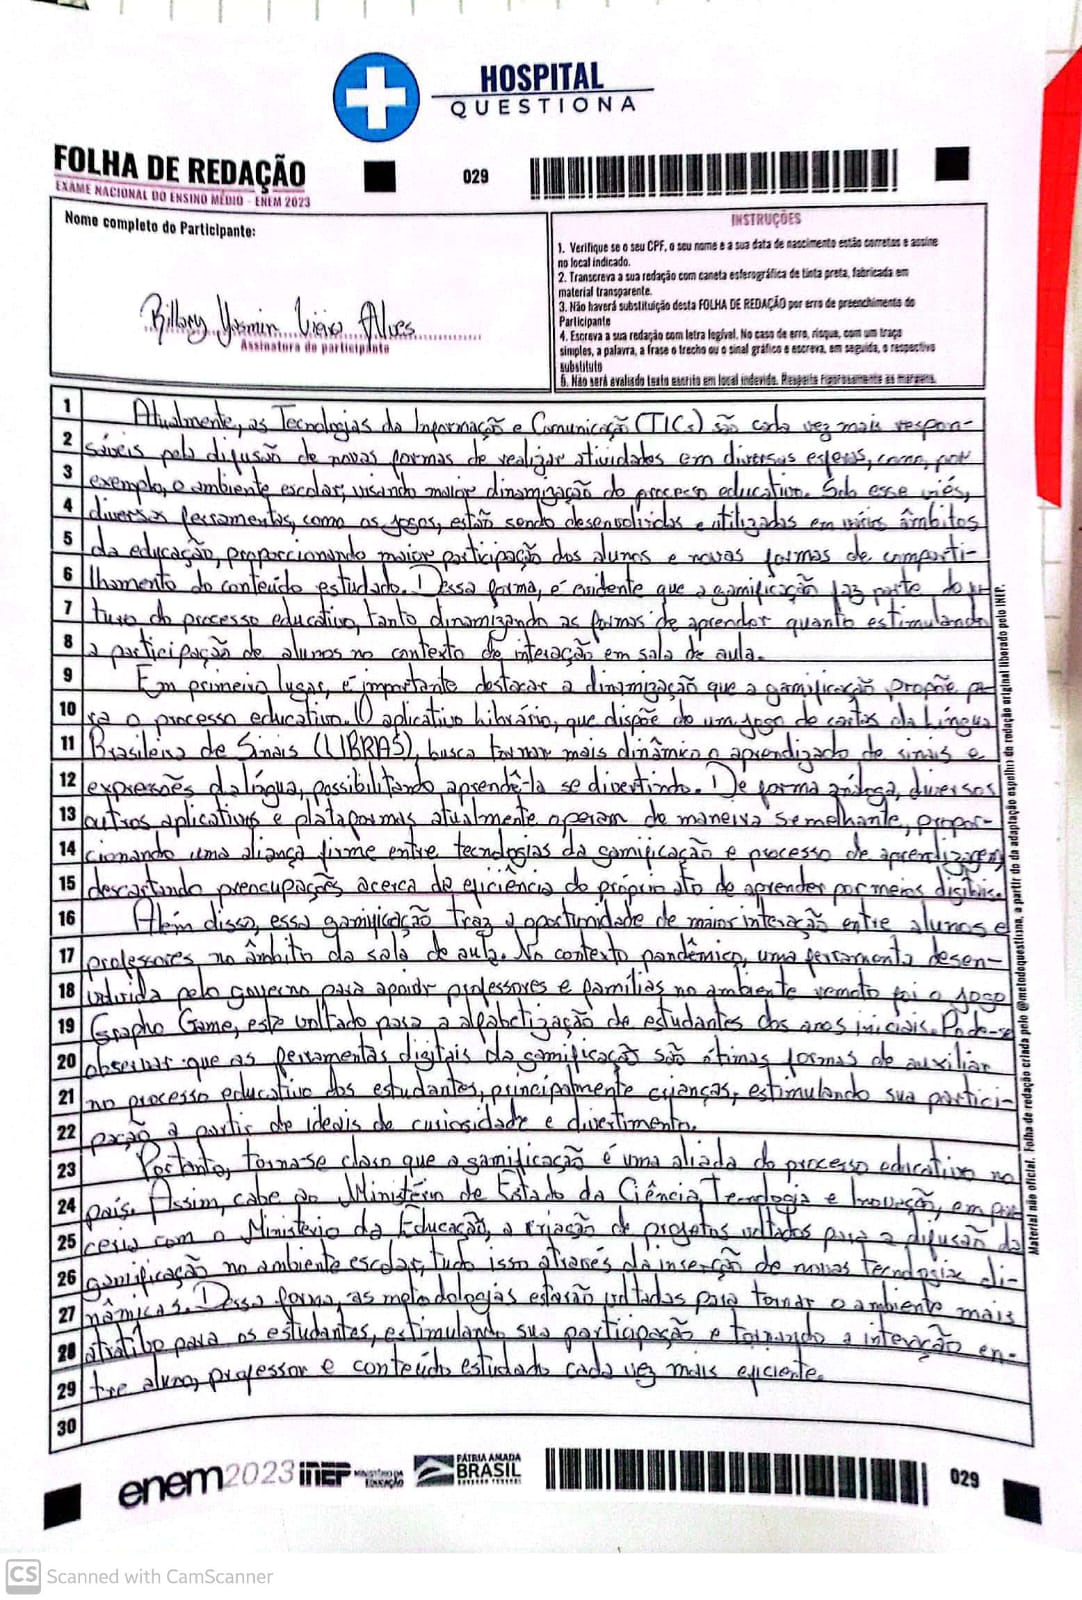 HOSPITAL
QUESTIONA
FOLHA DE REDAÇÃO
EXAME NACIONAL DO ENSINO MÉDIO - ENEM 2023
029
Nome completo do Participante:
Yasmin Alves
Assinatura do participante
INSTRUÇÕES
1. Verifique se o seu CPF, o seu nome e a sua data de nascimento estão corretos e assine
no local indicado.
2. Transcreva a sua redação com caneta esferográfica de tinta preta, fabricada em
material transparente.
3. Não haverá substituição desta FOLHA DE REDAÇÃO por erro de preenchimento do
Participante
4. Escreva a sua redação com letra legível. No caso de erro, risque, com um traço
simples, a palavra, a frase o trecho ou o sinal gráfico e escreva, em seguida, o respectivo
substituto
5. Não será avaliado texto escrito em local indevido. Respeite rigorosamente as margens.
1 Atualmente, as Tecnologias da Informação e Comunicação (TICs) são cada vez mais respon-
2 sáveis pela difusão de novas formas de realizar atividades em diversas esferas, como, por
3 exemplo, o ambiente escolar, visando maior dinamização do processo educativo. Sob esse viés,
4 diversas ferramentas, como os jogos, estão sendo desenvolvidas e utilizadas em vários âmbitos
5 da educação, proporcionando maior participação dos alunos e novas formas de comparti-
6 lhamento do conteúdo estudado. Dessa forma, é evidente que a gamificação faz parte do fu-
7 turo do processo educativo, tanto dinamizando as formas de aprender quanto estimulando
8 a participação de alunos no contexto de interação em sala de aula.
9 Em primeiro lugar, é importante destacar a dinamização que a gamificação propõe pa-
10 ra o processo educativo. O aplicativo Librário, que dispõe de um jogo de cartas da Língua
11 Brasileira de Sinais (LIBRAS), busca tornar mais dinâmico o aprendizado de sinais e
12 expressões da língua, possibilitando aprendê-la se divertindo. De forma análoga, diversos
13 outros aplicativos e plataformas atualmente operam de maneira semelhante, propor-
14 cionando uma aliança firme entre tecnologias da gamificação e processo de aprendizagem,
15 descartando preocupações acerca da eficiência do próprio ato de aprender por meios digitais.
16 Além disso, essa gamificação traz a oportunidade de maior interação entre alunos e
17 professores no âmbito da sala de aula. No contexto pandêmico, uma ferramenta desen-
18 volvida pelo governo para apoiar professores e famílias no ambiente remoto foi o jogo
19 Grapho Game, este voltado para a alfabetização de estudantes dos anos iniciais. Pode-se
20 observar que as ferramentas digitais da gamificação são ótimas formas de auxiliar
21 no processo educativo dos estudantes, principalmente crianças, estimulando sua partici-
22 pação a partir de ideais de curiosidade e divertimento.
23 Portanto, torna-se claro que a gamificação é uma aliada do processo educativo no
24 país. Assim, cabe ao Ministério de Estado da Ciência, Tecnologia e Inovação, em par-
25 ceria com o Ministério da Educação, a criação de projetos voltados para a difusão da
26 gamificação no ambiente escolar, tudo isso através da inserção de novas tecnologias di-
27 nâmicas. Dessa forma, as metodologias estarão voltadas para tornar o ambiente mais
28 atrativo para os estudantes, estimulando sua participação e tornando a interação en-
29 tre aluno, professor e conteúdo estudado cada vez mais eficiente.
30
Material não oficial. Folha de redação criada pelo @metodoquestiona, a partir da adaptação espelho da redação original liberado pelo INEP.
enem2023 inep MINISTÉRIO DA EDUCAÇÃO PÁTRIA AMADA BRASIL
029
CS Scanned with CamScanner